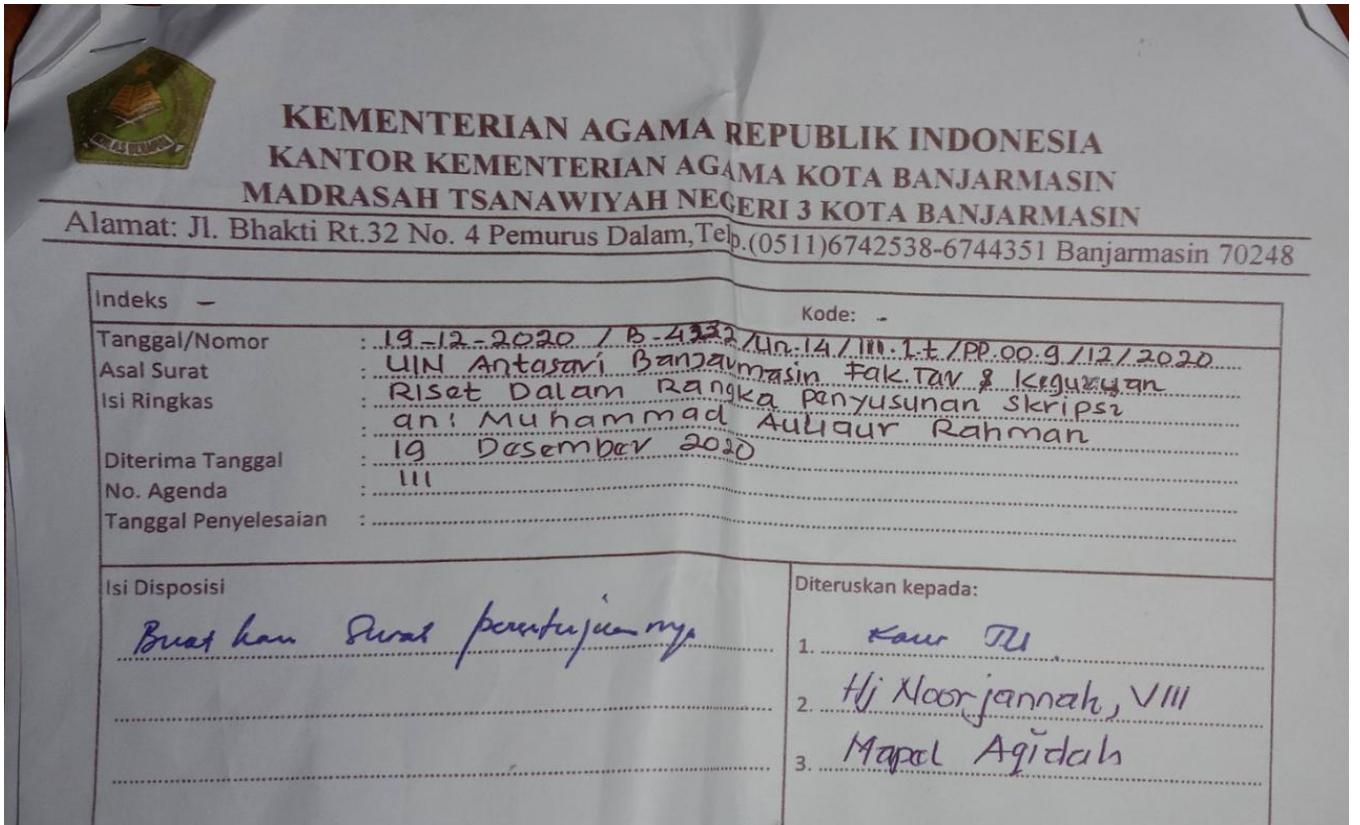 IKHLAS BERAMAL
KEMENTERIAN AGAMA REPUBLIK INDONESIA
KANTOR KEMENTERIAN AGAMA KOTA BANJARMASIN
MADRASAH TSANAWIYAH NEGERI 3 KOTA BANJARMASIN
Alamat: Jl. Bhakti Rt.32 No. 4 Pemurus Dalam,Telp.(0511)6742538-6744351 Banjarmasin 70248
Indeks – Kode: -
Tanggal/Nomor : 19-12-2020 / B-4332/Un.14/III.1.t/PP.00.9/12/2020
Asal Surat : UIN Antasari Banjarmasin Fak.Tar & Keguruan
Isi Ringkas : Riset Dalam Rangka Penyusunan Skripsi
: an: Muhammad Auliaur Rahman
Diterima Tanggal : 19 Desember 2020
No. Agenda : 111
Tanggal Penyelesaian :
Isi Disposisi
Buat kan Surat persetujuannya
Diteruskan kepada:
1. Kaur TU
2. Hj Noorjannah, VIII
3. Mapel Aqidah